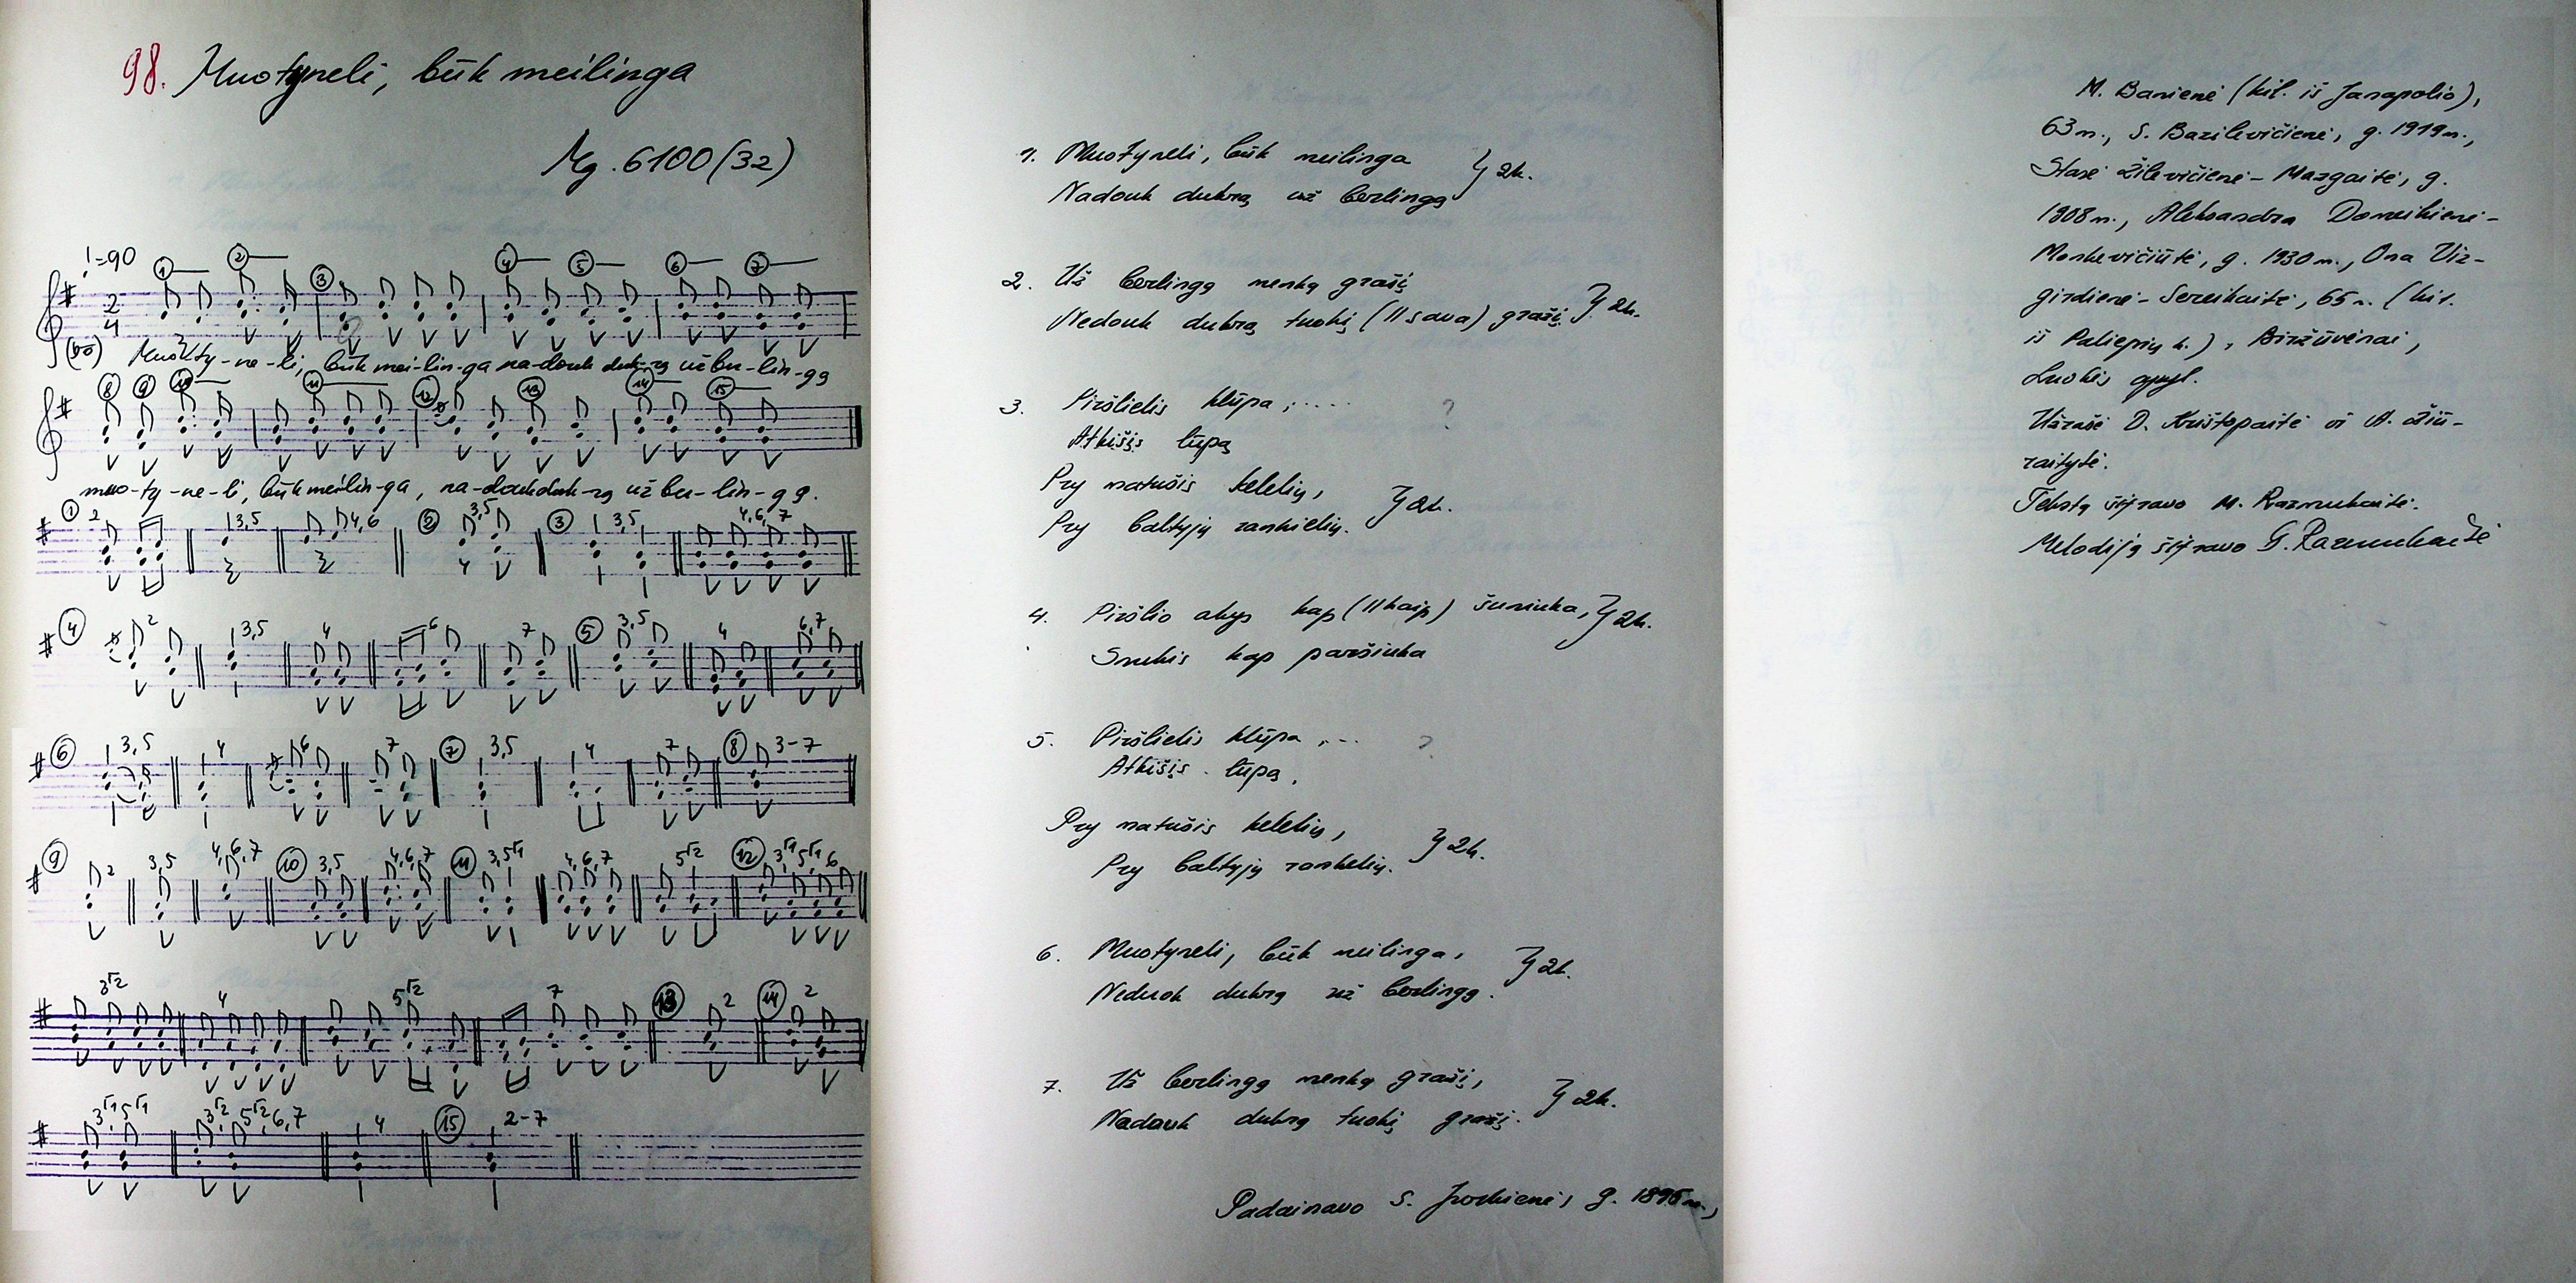 98. Muotyneli, būk meilinga
Mg. 6100 (32)
♩=90
Muo-ty-ne-li, būk mei-lin-ga na-douk duk-rą už bu-lin-gą
muo-ty-ne-li, būk meilin-ga, na-douk duk-rą už bu-lin-gą.
1. Muotyneli, būk meilinga
Nadouk dukrą už berlingą } 2k.
2. Už berlingą menką grašį
Nedouk dukrą tuokį (//sava) gražį. } 2k.
3. Piršlielis klūpa, ..... ?
Atkišis lūpą
Pry matušis kelelių,
Pry baltyjų rankielių. } 2k.
4. Piršlio akys kap (//kaip) šuniuka, } 2k.
Snukis kap paršiuka
5. Piršlielis klūpa, ... ?
Atkišis lūpą,
Pry matušis kelelių,
Pry baltyjų rankelių. } 2k.
6. Muotyneli, būk meilinga,
Neduok dukrą už berlingą. } 2k.
7. Už berlingą menką grašį,
Nadouk dukrą tuokį gražį. } 2k.
Padainavo S. g. 1895 m.,
M. Barienė (kil. iš Janapolio),
63 m., S. Bazilevičienė, g. 1919 m.,
Stasė Žilevičienė-Mazgaitė, g.
1908 m., Aleksandra Domeikienė-
Monkevičiūtė, g. 1930 m., Ona Viz-
girdienė-Sereikaitė, 65 m. (kil.
iš Paliepių k.), Biržūvėnai,
Luokės apyl.
Užrašė D. Krištopaitė ir A. Žiū-
raitytė.
Tekstą šifravo M. Razmukaitė.
Melodiją šifravo G. Razmukaitė